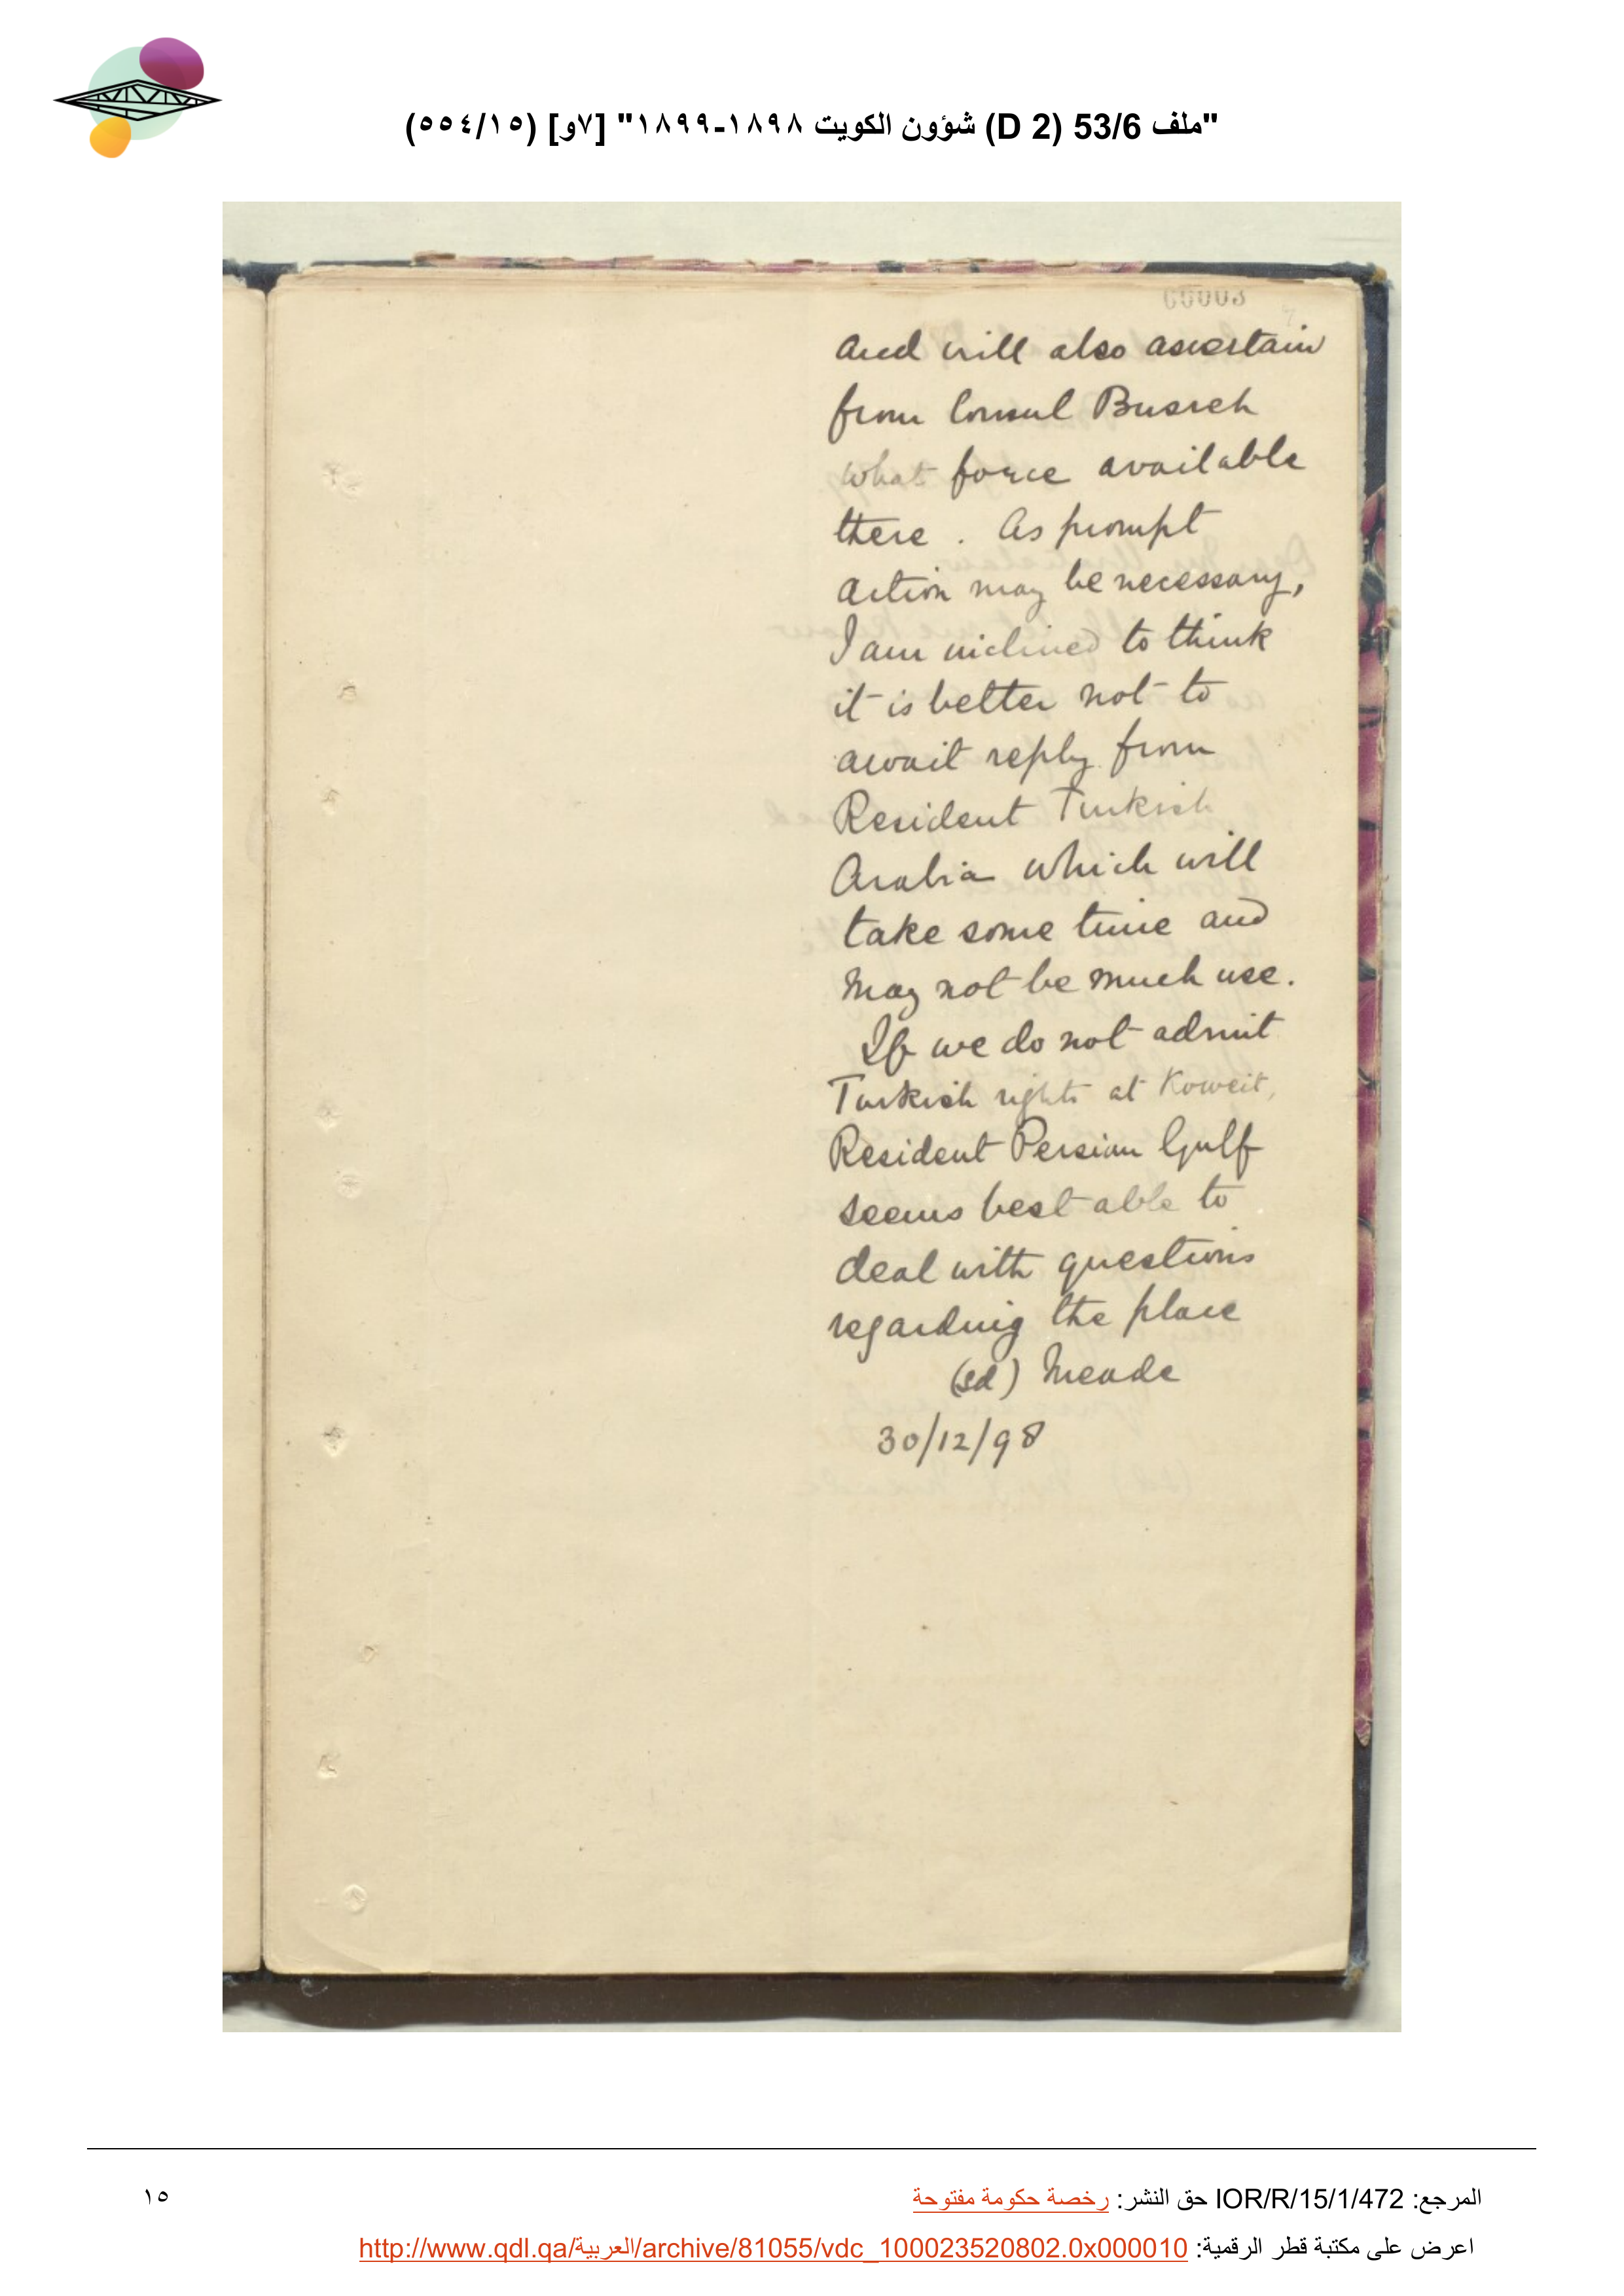 "ملف 53/6 (D 2) شؤون الكويت ١٨٩٨-١٨٩٩" [٧و] (٥٥٤/١٥)
and will also ascertain
from Consul Busreh
what force available
there. As prompt
action may be necessary,
I am inclined to think
it is better not to
await reply from
Resident Turkish
Arabia which will
take some time and
may not be much use.
If we do not admit
Turkish rights at Koweit,
Resident Persian Gulf
seems best able to
deal with questions
regarding the place
(sd) Meade
30/12/98
المرجع: IOR/R/15/1/472 حق النشر: رخصة حكومة مفتوحة
١٥
اعرض على مكتبة قطر الرقمية: http://www.qdl.qa/العربية/archive/81055/vdc_100023520802.0x000010